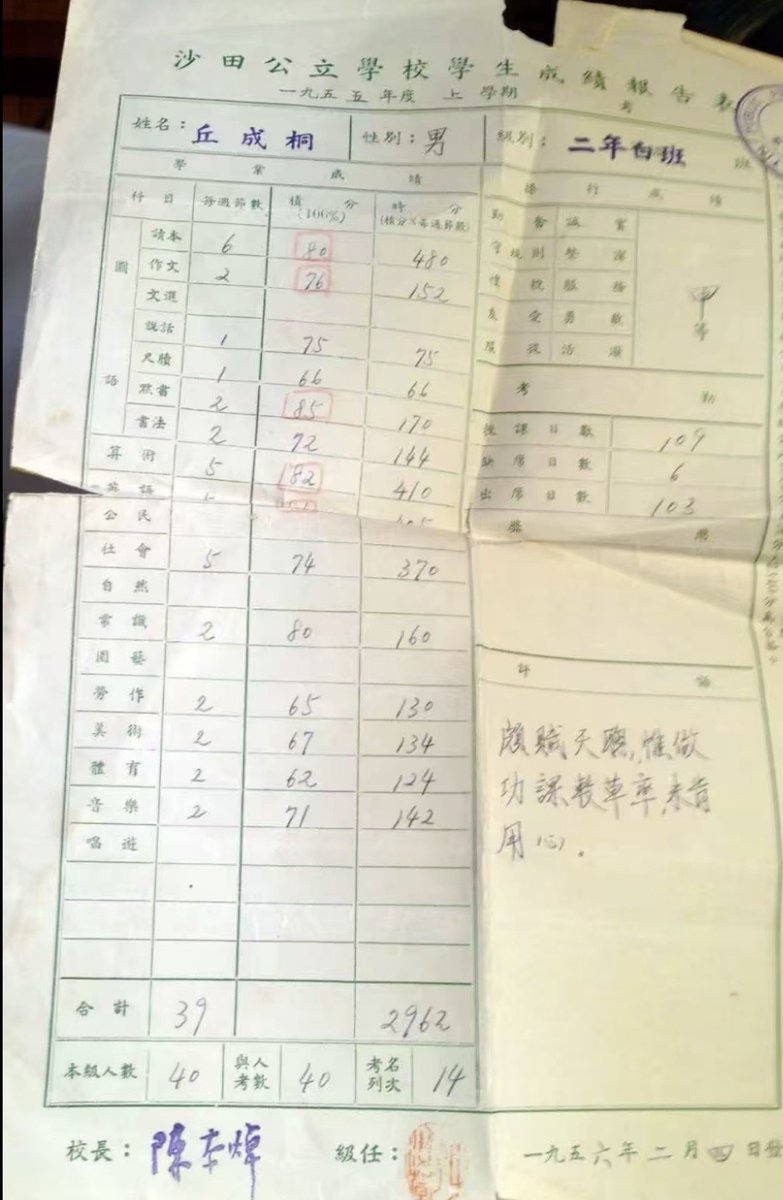 沙田公立學校學生成績報告表
一九五五年度 上學期
姓名：丘成桐 性別：男 級別：二年白班
學業成績
科目 每週節數 積分(100%) 時分(積分×每週節數)
國語
讀本 6 80 480
作文 2 76 152
文選
說話 1 75 75
尺牘 1 66 66
默書 2 85 170
書法 2 72 144
算術 5 82 410
英語
公民
社會 5 74 370
自然
常識 2 80 160
園藝
勞作 2 65 130
美術 2 67 134
體育 2 62 124
音樂 2 71 142
唱遊
合計 39 2962
本級人數 40 與考人數 40 考列名次 14
操行成績
勤奮誠實
守規則整潔
禮貌服務
友愛勇敢
甲等
考勤
授課日數 109
缺席日數 6
出席日數 103
獎懲
評語
頗賦天聰,惟做
功課較草率,未肯
用心.
校長： 級任：
一九五六年二月四日發